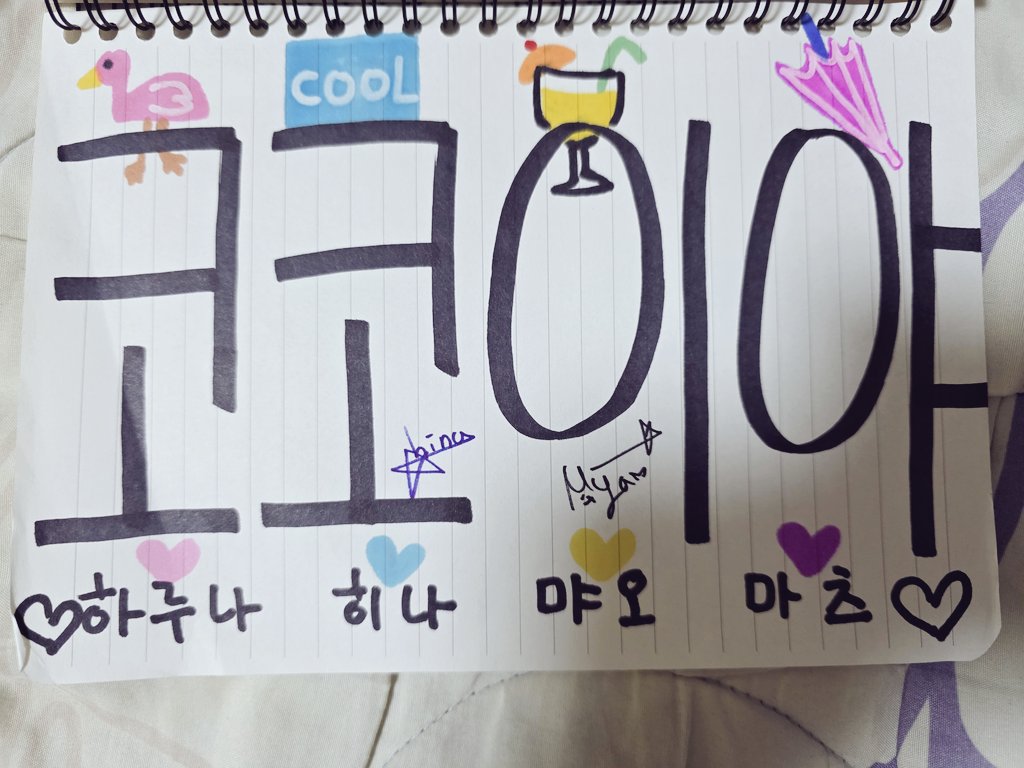 COOL
코코이야
hina
Myao
하루나 히나 먀오 마츠